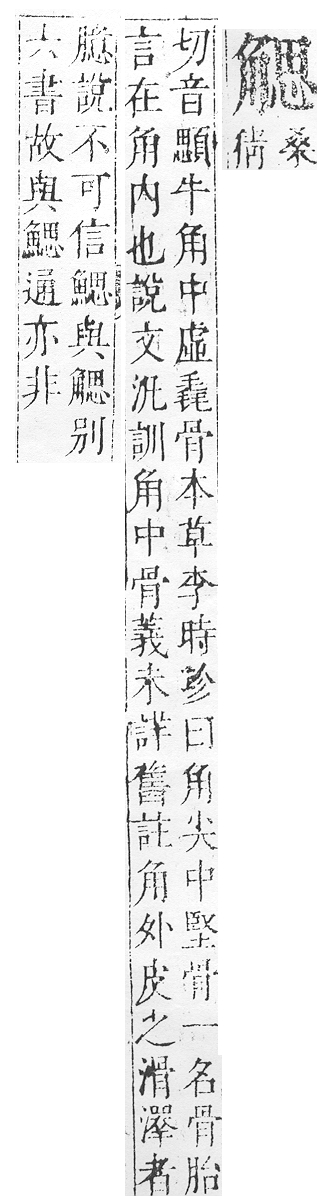 䚡
桑
猜
切音顋牛角中虛毳骨本草李時珍曰角尖中堅骨一名骨胎
言在角內也說文汎訓角中骨義未詳舊註角外皮之滑澤者
臆說不可信鰓與䚡別
六書故與鰓通亦非